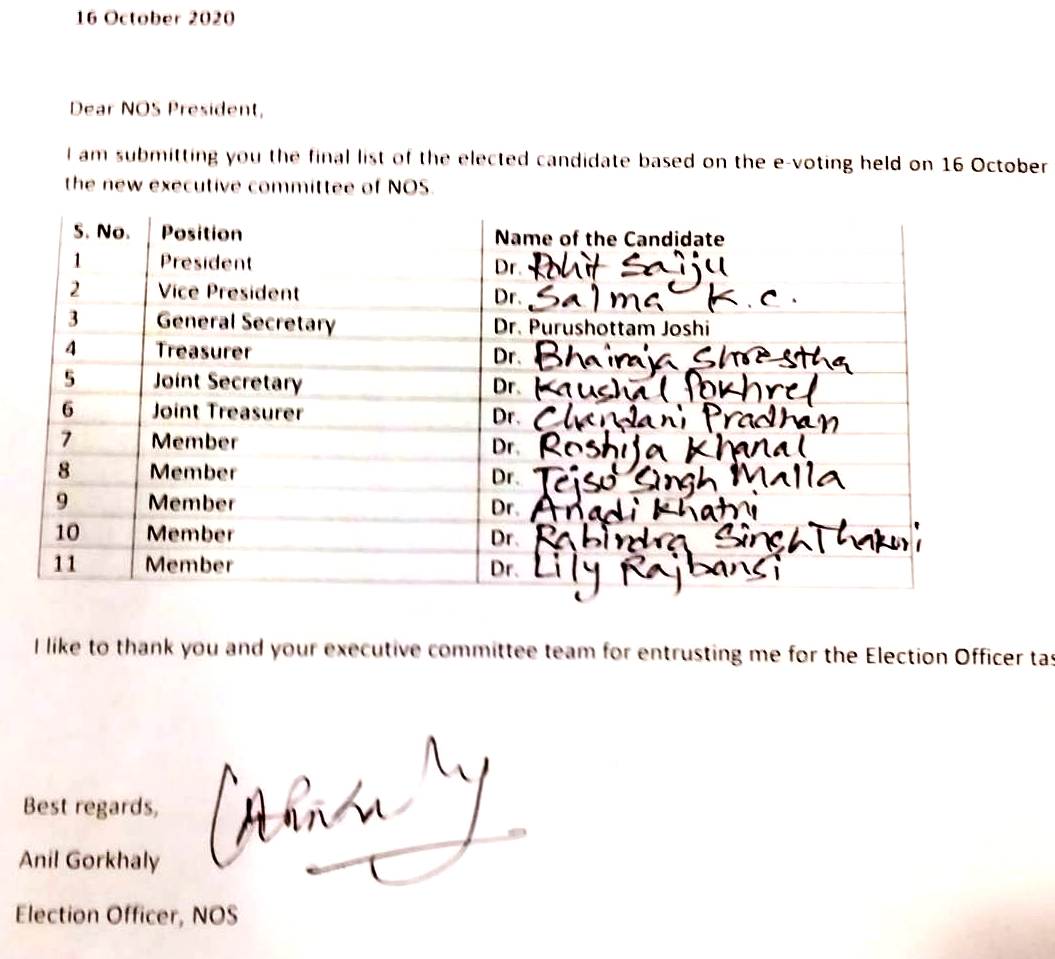 16 October 2020
Dear NOS President,
I am submitting you the final list of the elected candidate based on the e-voting held on 16 October
the new executive committee of NOS.
S. No. Position Name of the Candidate
1 President Dr. Rohit Saiju
2 Vice President Dr. Salma K.C.
3 General Secretary Dr. Purushottam Joshi
4 Treasurer Dr. Bhairaja Shrestha
5 Joint Secretary Dr. Kaushal Pokhrel
6 Joint Treasurer Dr. Chandani Pradhan
7 Member Dr. Roshija Khanal
8 Member Dr. Singh Malla
9 Member Dr. Anadi Khatri
10 Member Dr. Rabindra Singh Thakuri
11 Member Dr. Lily Rajbansi
I like to thank you and your executive committee team for entrusting me for the Election Officer
Best regards,
Anil Gorkhaly
Election Officer, NOS